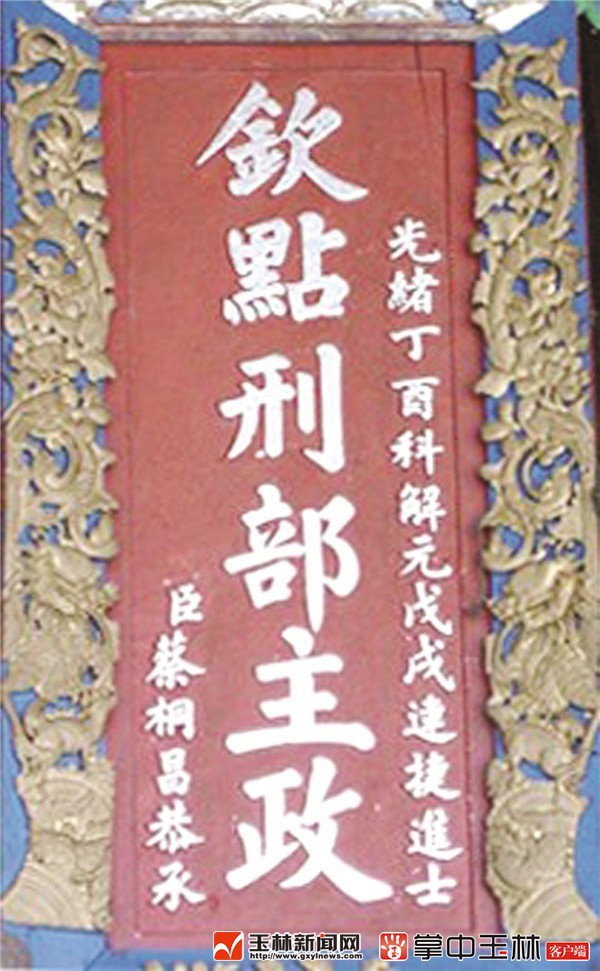 光緒丁酉科解元戊戌連捷進士
欽點刑部主政
臣蔡桐昌恭承
玉林新闻网
www.gxylnews.com
掌中玉林 客户端